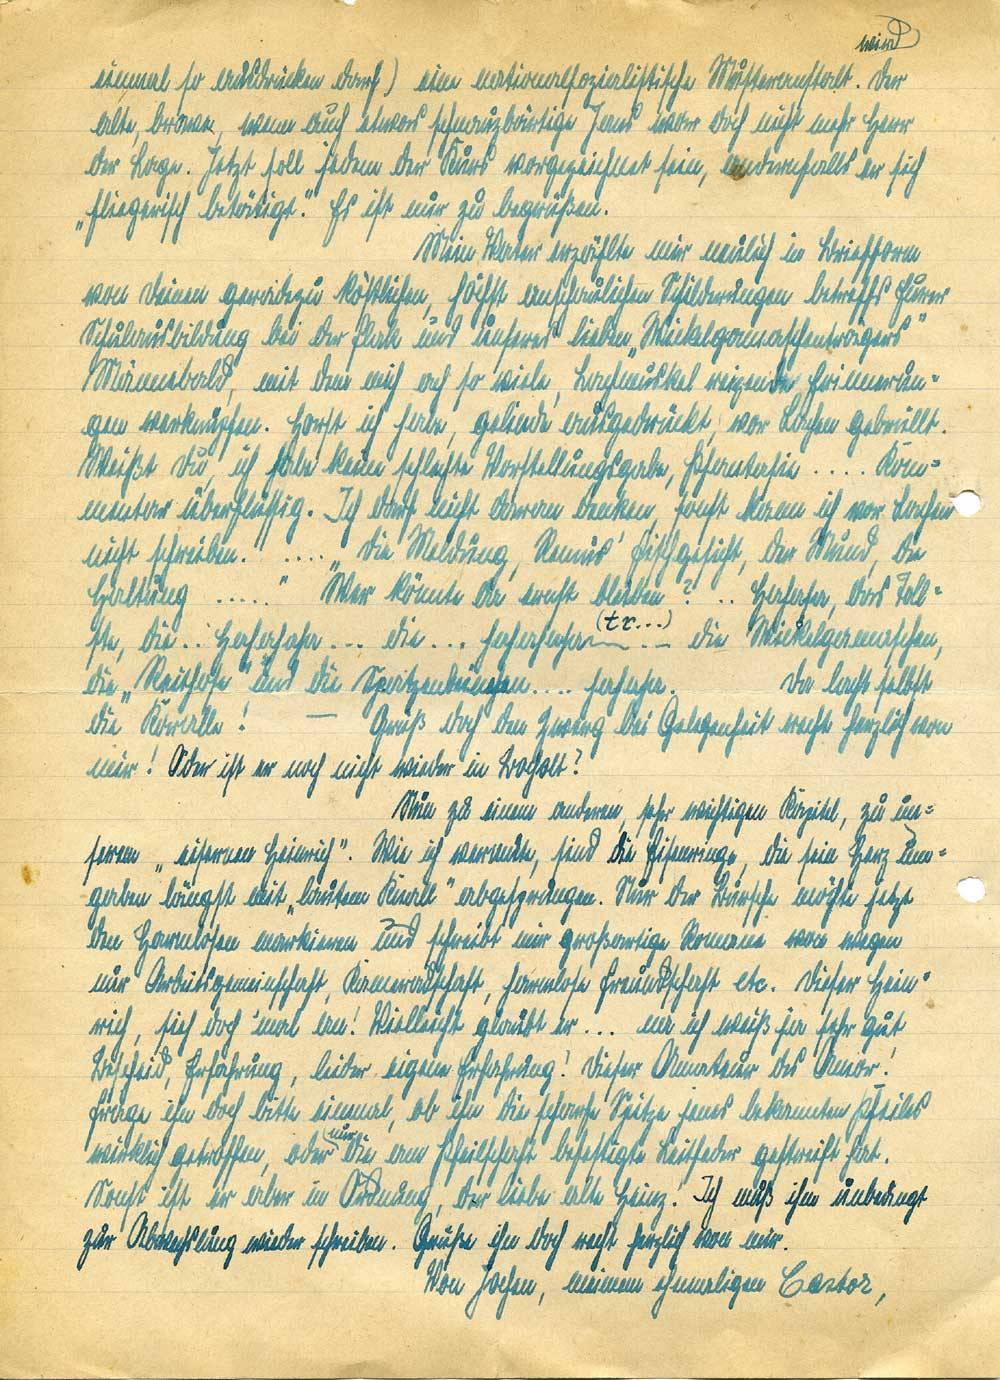 wird
einmal so ausdrücken darf) eine nationalsozialistische Musteranstalt. Der
alte, brave, wenn auch etwas schnauzbärtige Jans war doch nicht mehr Herr
der Lage. Jetzt soll jedem der Kurs vorgezeichnet sein, andernfalls er sich
„fliegerisch betätigt." Es ist nur zu begrüßen.
Mein Vater erzählte mir neulich in Briefform
von Deinen geradezu köstlichen, höchst anschaulichen Schilderungen betreffs Eurer
Schulausbildung bei der Flak und unseres lieben „Wickelgamaschenträgers"
Männebald, mit dem mich ach so viele, Lachmuskel reizende Erinnerun=
gen verknüpfen. Horst ich habe, gelinde ausgedrückt, vor Lachen gebrüllt.
Weißt Du, ich habe keine schlechte Vorstellungsgabe, Phantasie .... Kom=
mentar überflüssig. Ich darf nicht daran denken, sonst kann ich vor Lachen
nicht schreiben. .... „Die Meldung, Fischgesicht, der Mund, die
Haltung ....." Wer könnte da ernst bleiben? .. Hahaha, das Toll=
ste, die .. Hahahaha ... die ... hahahaha (tr...) ... die Wickelgamaschen,
die „Reithose" und die .... hahaha. Da lacht selbst
die Koralle! — Grüß doch den Zwerg bei Gelegenheit recht herzlich von
mir! Oder ist er noch nicht wieder in Bocholt?
Nun zu einem anderen, sehr wichtigen Kapitel, zu un=
serem „eisernen Heinrich". Wie ich vermute, sind die Eisenringe, die sein Herz um=
gaben längst mit „lautem Knall" abgesprungen. Nur der Bursche möchte jetzt
den Harmlosen markieren und schreibt mir großartige Romane von wegen
nur Arbeitsgemeinschaft, Kameradschaft, harmlose Freundschaft etc. Dieser Hein=
rich, sieh doch 'mal an! Vielleicht glaubt er ... na ich weiß ja sehr gut
Bescheid, Erfahrung, leider eigene Erfahrung! Dieser Amateur des Amor!
Frage ihn doch bitte einmal, ob ihn die scharfe Spitze jenes bekannten Pfeiles
wirklich getroffen, oder nur die am Pfeilschaft befestigte Leitfeder gestreift hat.
Sonst ist er aber in Ordnung, der liebe alte Heinz. Ich muß ihm unbedingt
zur Abwechslung wieder schreiben. Grüße ihn doch recht herzlich von mir.
Von Jochen, meinem ehmaligen Castor,